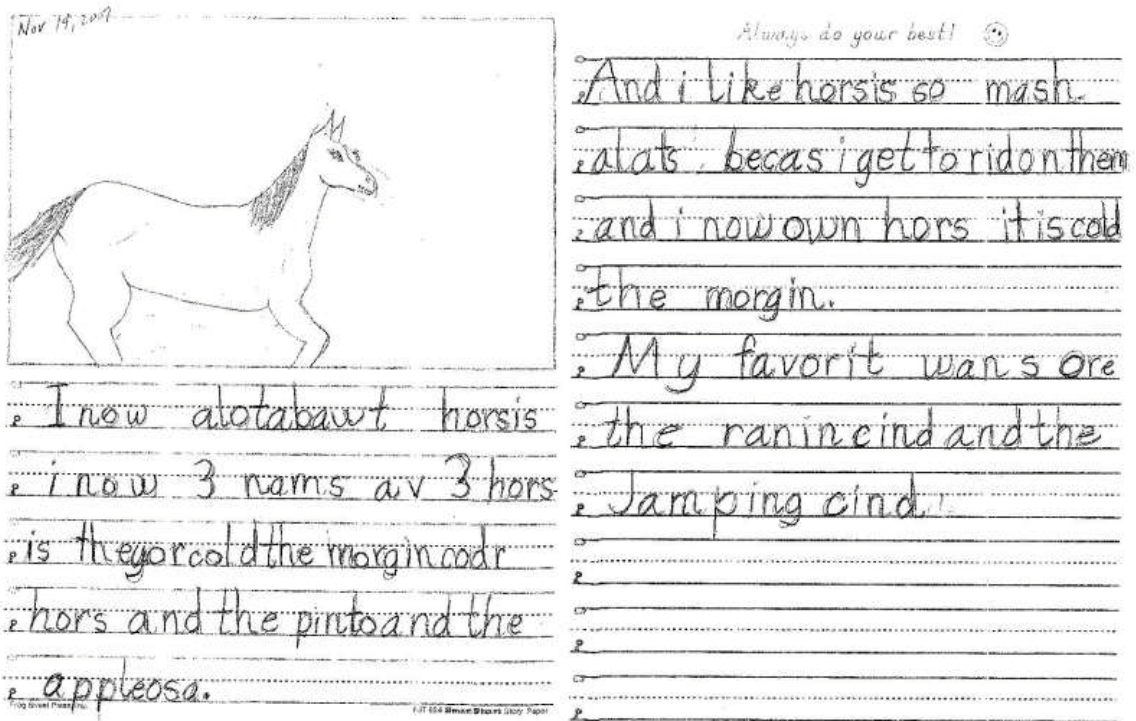 Nov 14, 2007
I now alotabawt horsis
i now 3 nams av 3 hors
is theyorcoldthe morgin codr
hors and the pintoand the
appleosa.
Frog Street Press, Inc.
Smart Start Story Paper
Always do your best!
And i like horsis so mash.
alats becas i get to rid on them
and i now own hors it is cold
the morgin.
My favorit wans ore
the ranin cind and the
Jamping cind.